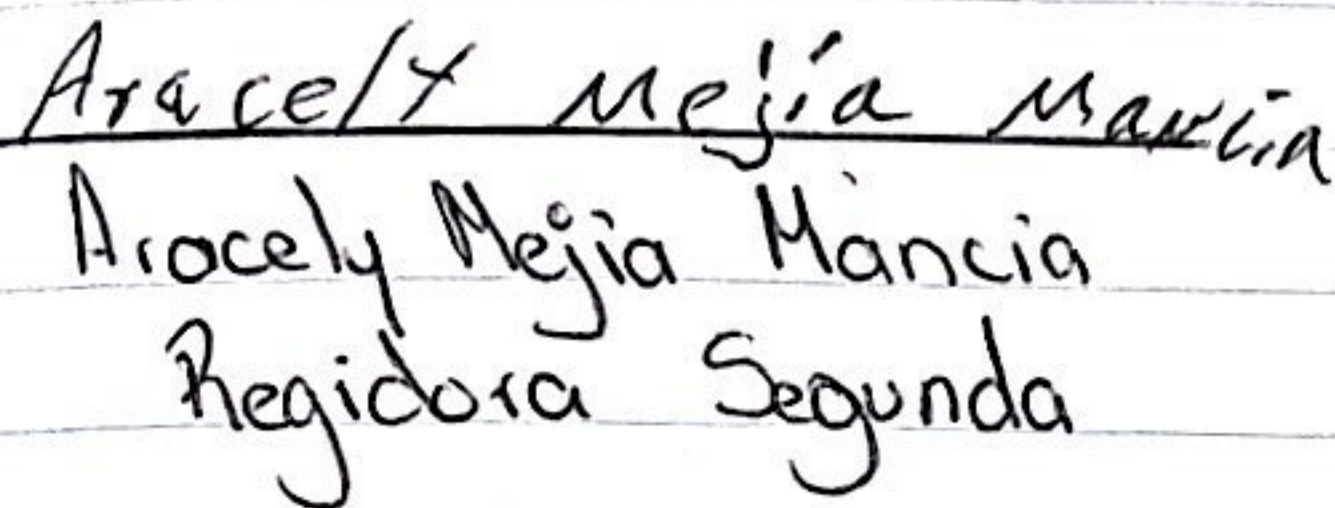 Aracely Mejía Mancia
Aracely Mejia Mancia
Regidora Segunda